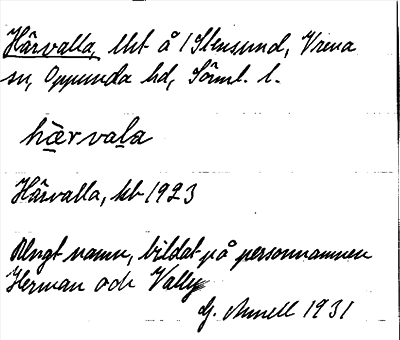 Härvalla, lht å /Stensund, Vrena
sn, Oppunda hd, Söml. l.
hærvala
Härvalla, kb 1923
Ungt namn, bildat på personnamnen
Herman och Vally
G. Annell 1931